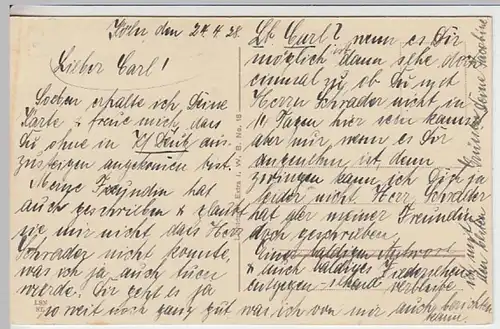 Köln, den 24.4.28.
Lieber Carl!
Soeben erhalte ich Deine
Karte & freue mich, dass
Du ohne in Kf Deutz aus-
zusteigen angekommen bist.
Meine Freundin hat
auch geschrieben & glaubt
sie mir nicht dass Herr
Schrader nicht konnte,
was ich ja auch tuen
werde. Dir geht es ja
so weit noch ganz gut was ich von mir auch berichten
kann.
Lb. Carl? wenn es Dir
möglich ist dann siehe doch
einmal zu ob Du mit
Herrn Schrader nicht in
14 Tagen hier sein kannst
aber nur wenn es Dir
angenehm ist, denn
zwingen kann ich Dich ja
leider nicht. Herr Schrader
hat aber meiner Freundin
doch geschrieben.
Einer baldigen Antwort
& auch baldiges Wiedersehen
entgegen verbleibe
ich mit
den besten Grüssen Deine
Extra L. W. B. No. 18